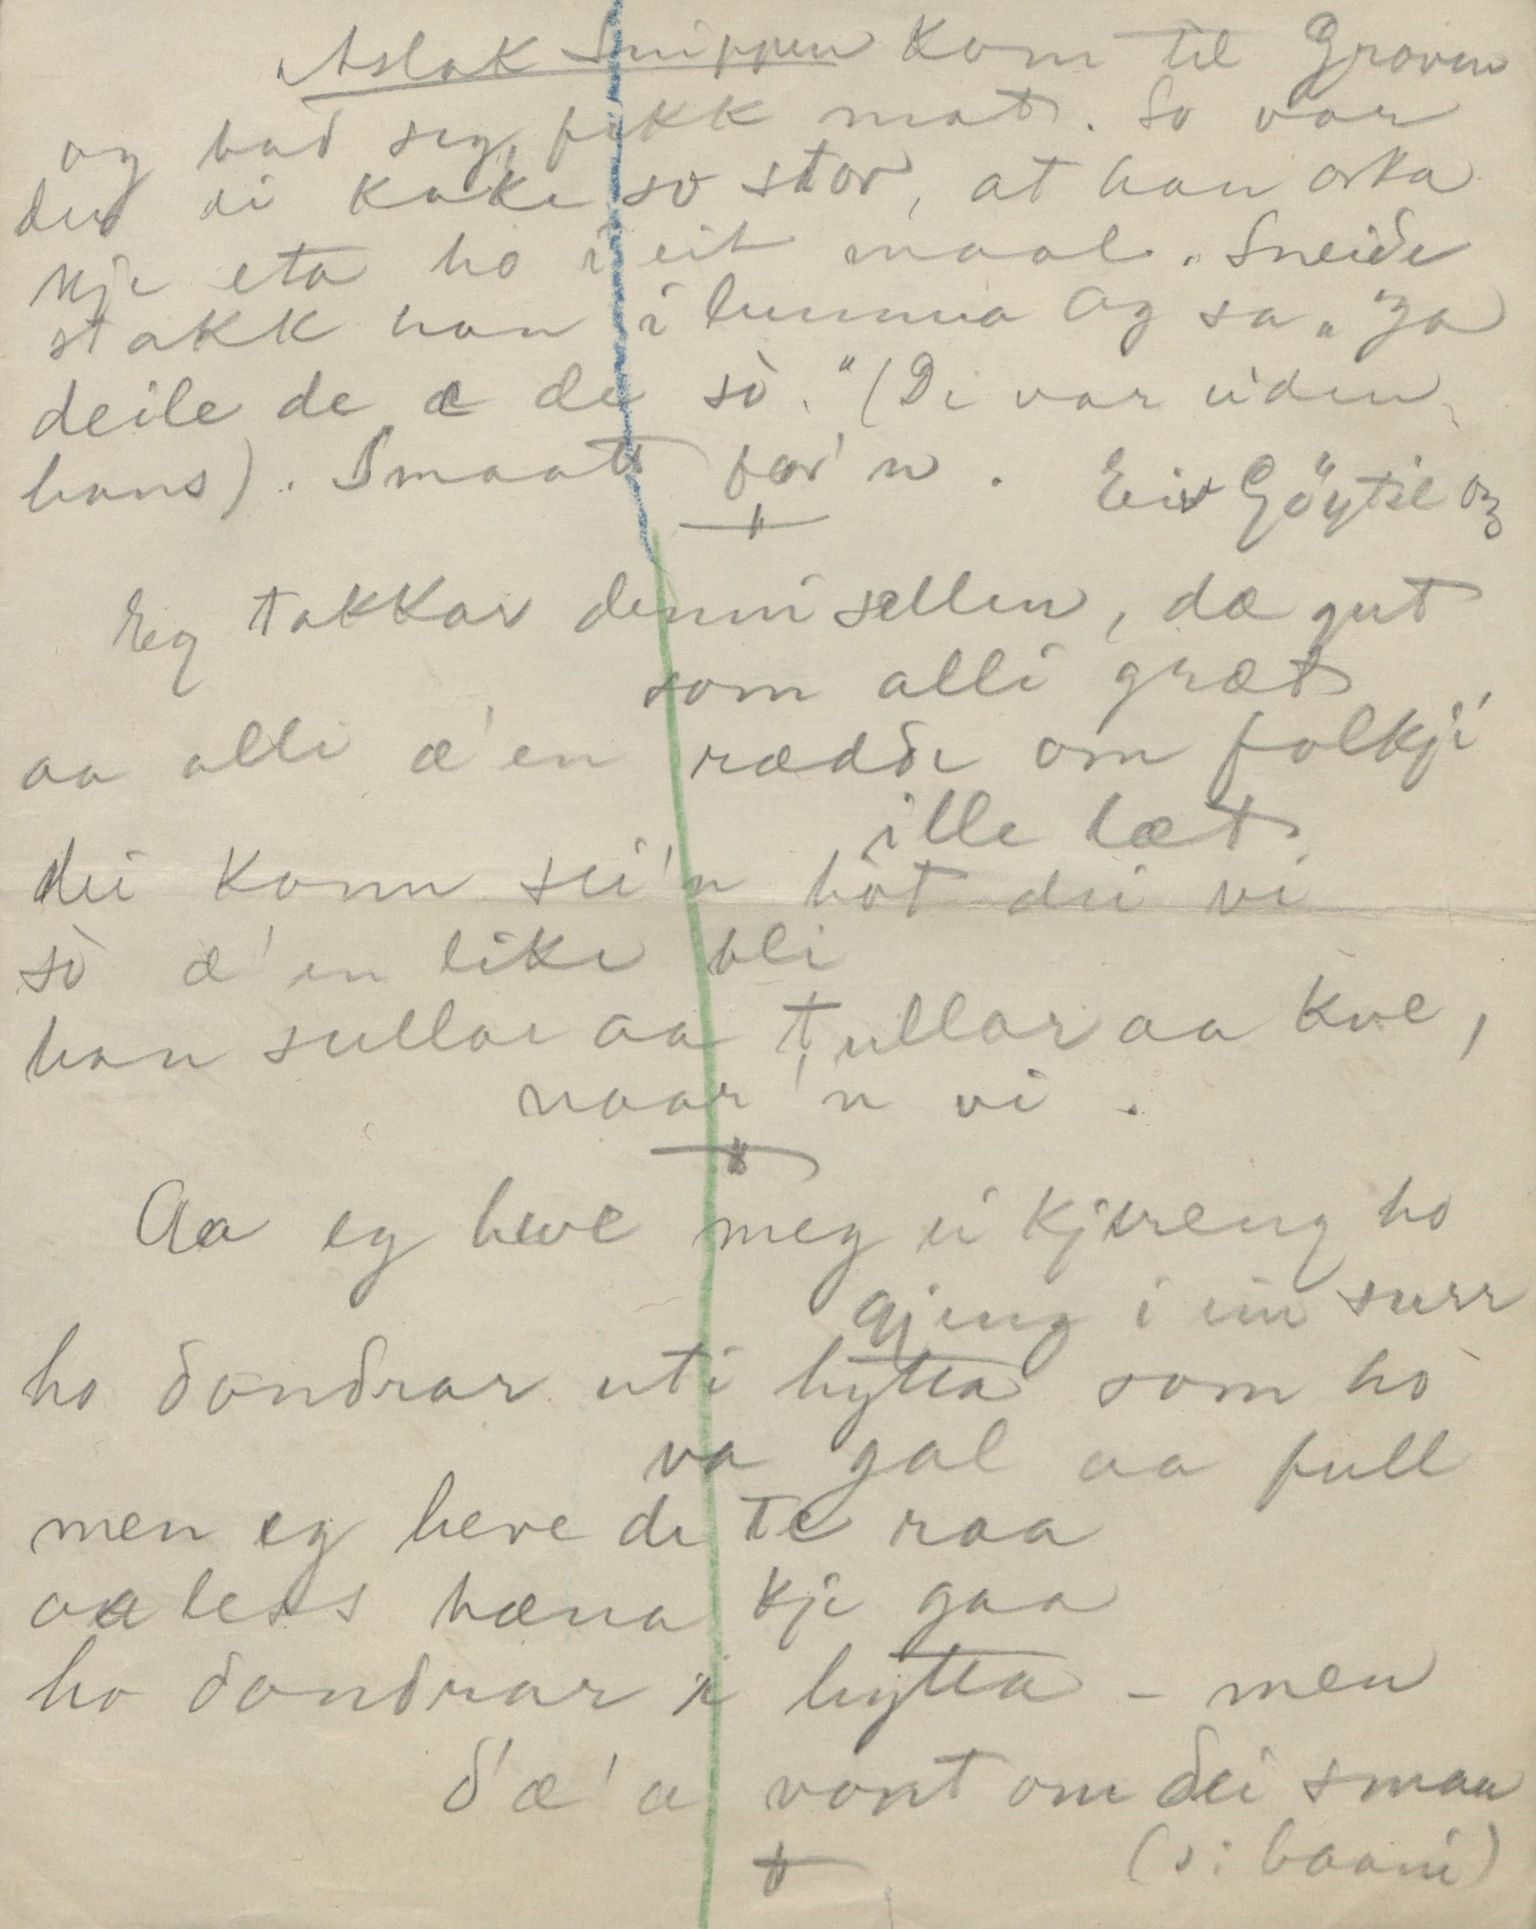 Aslak Snippen kom til Groven
og bad seg, fekk mat. So var
den ei kake so stor, at han orka
kje eta ho i eit maal. Sneide
stakk han i lumma og sa „Ja
deile de æ de sò." (De var uiden
hans). Smaatt for'n. Eiv Göytil og
Eg takkar denni sellen, dæ gut
som alli græt
aa alli æ'en rædde om folkji
ille læt,
dei konn sei'n hòt dei vi
sò æ'en like bli
han sullar aa tullar aa kve,
naar'n vi.
Aa eg heve meg ei kjereng ho
gjeng i ein surr
ho dondrar uti hytta som ho
va gal aa full
men eg heve de te raa
aa less hæna kje gaa
ho dondrar i hytta - men
d'æ'a vont om dei smaa
(ɔ: baani)